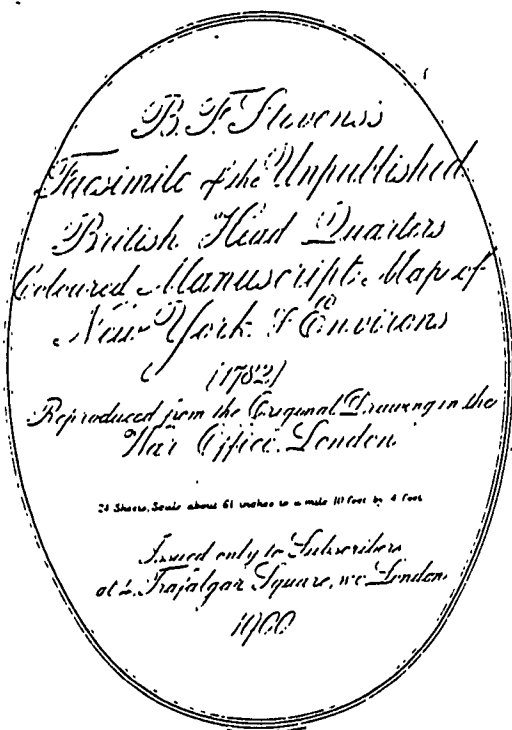 B. F. Stevens's
Facsimile of the Unpublished
British Head Quarters
Coloured Manuscript Map of
New York & Environs
(1782)
Reproduced from the Original Drawing in the
War Office, London
24 Sheets, Scale about 6½ inches to a mile 10 feet by 4 feet
Issued only to Subscribers
at 4 Trafalgar Square, W.C. London
1900